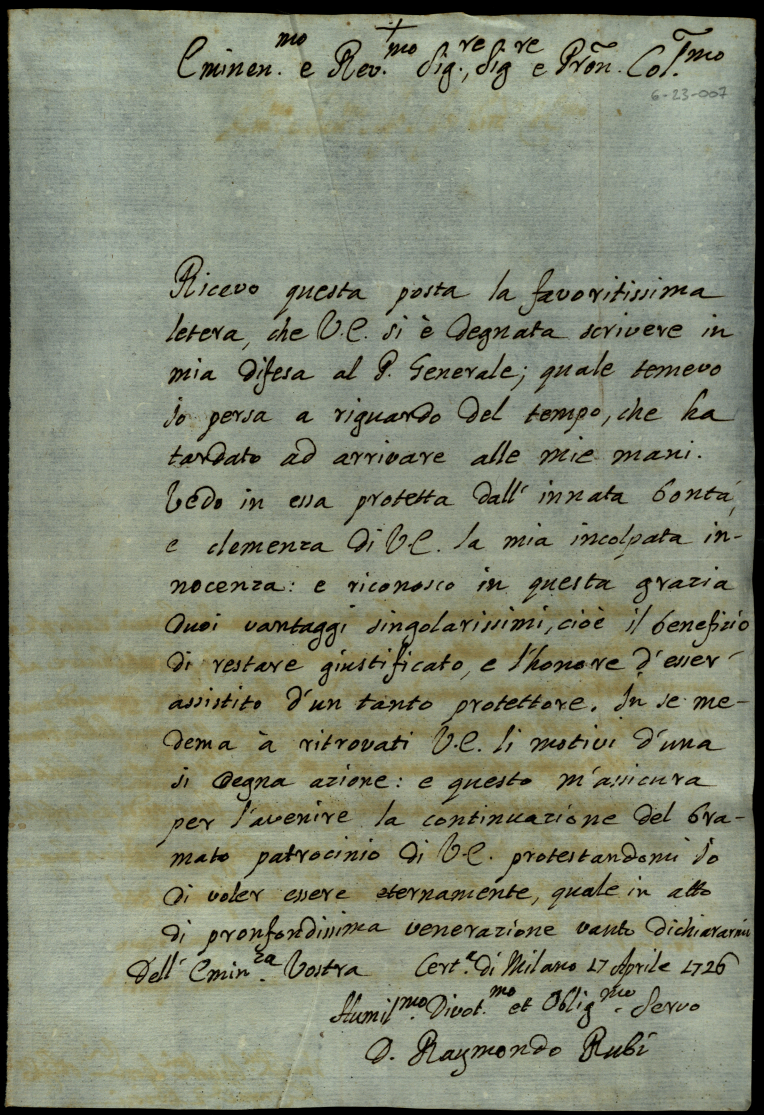 +
Eminen.mo e Rev.mo Sig.re, Sig.re e Pron. Col.mo
6-23-007
Ricevo questa posta la favoritissima
letera, che V.E. si è degnata scrivere in
mia difesa al P. Generale; quale temevo
io persa a riguardo del tempo, che ha
tardato ad arrivare alle mie mani.
Vedo in essa protetta dall' innata bontà,
e clemenza di V.E. la mia incolpata in-
nocenza: e riconosco in questa grazia
duoi vantaggi singolarissimi, cioè il benefizio
di restare giustificato, e l'honore d'esser
assistito d'un tanto protettore. In se me-
dema à ritrovati V.E. li motivi d'una
si degna azione: e questo m'assicura
per l'avenire la continuazione del bra-
mato patrocinio di V.E. protestandomi io
di voler essere eternamente, quale in atto
di pronfondissima venerazione vanto dichiararmi
Dell' Emin.za Vostra Cert.a di Milano 17 Aprile 1726
Humil.mo Divot.mo et Oblig.mo Servo
D. Raymondo Rubi